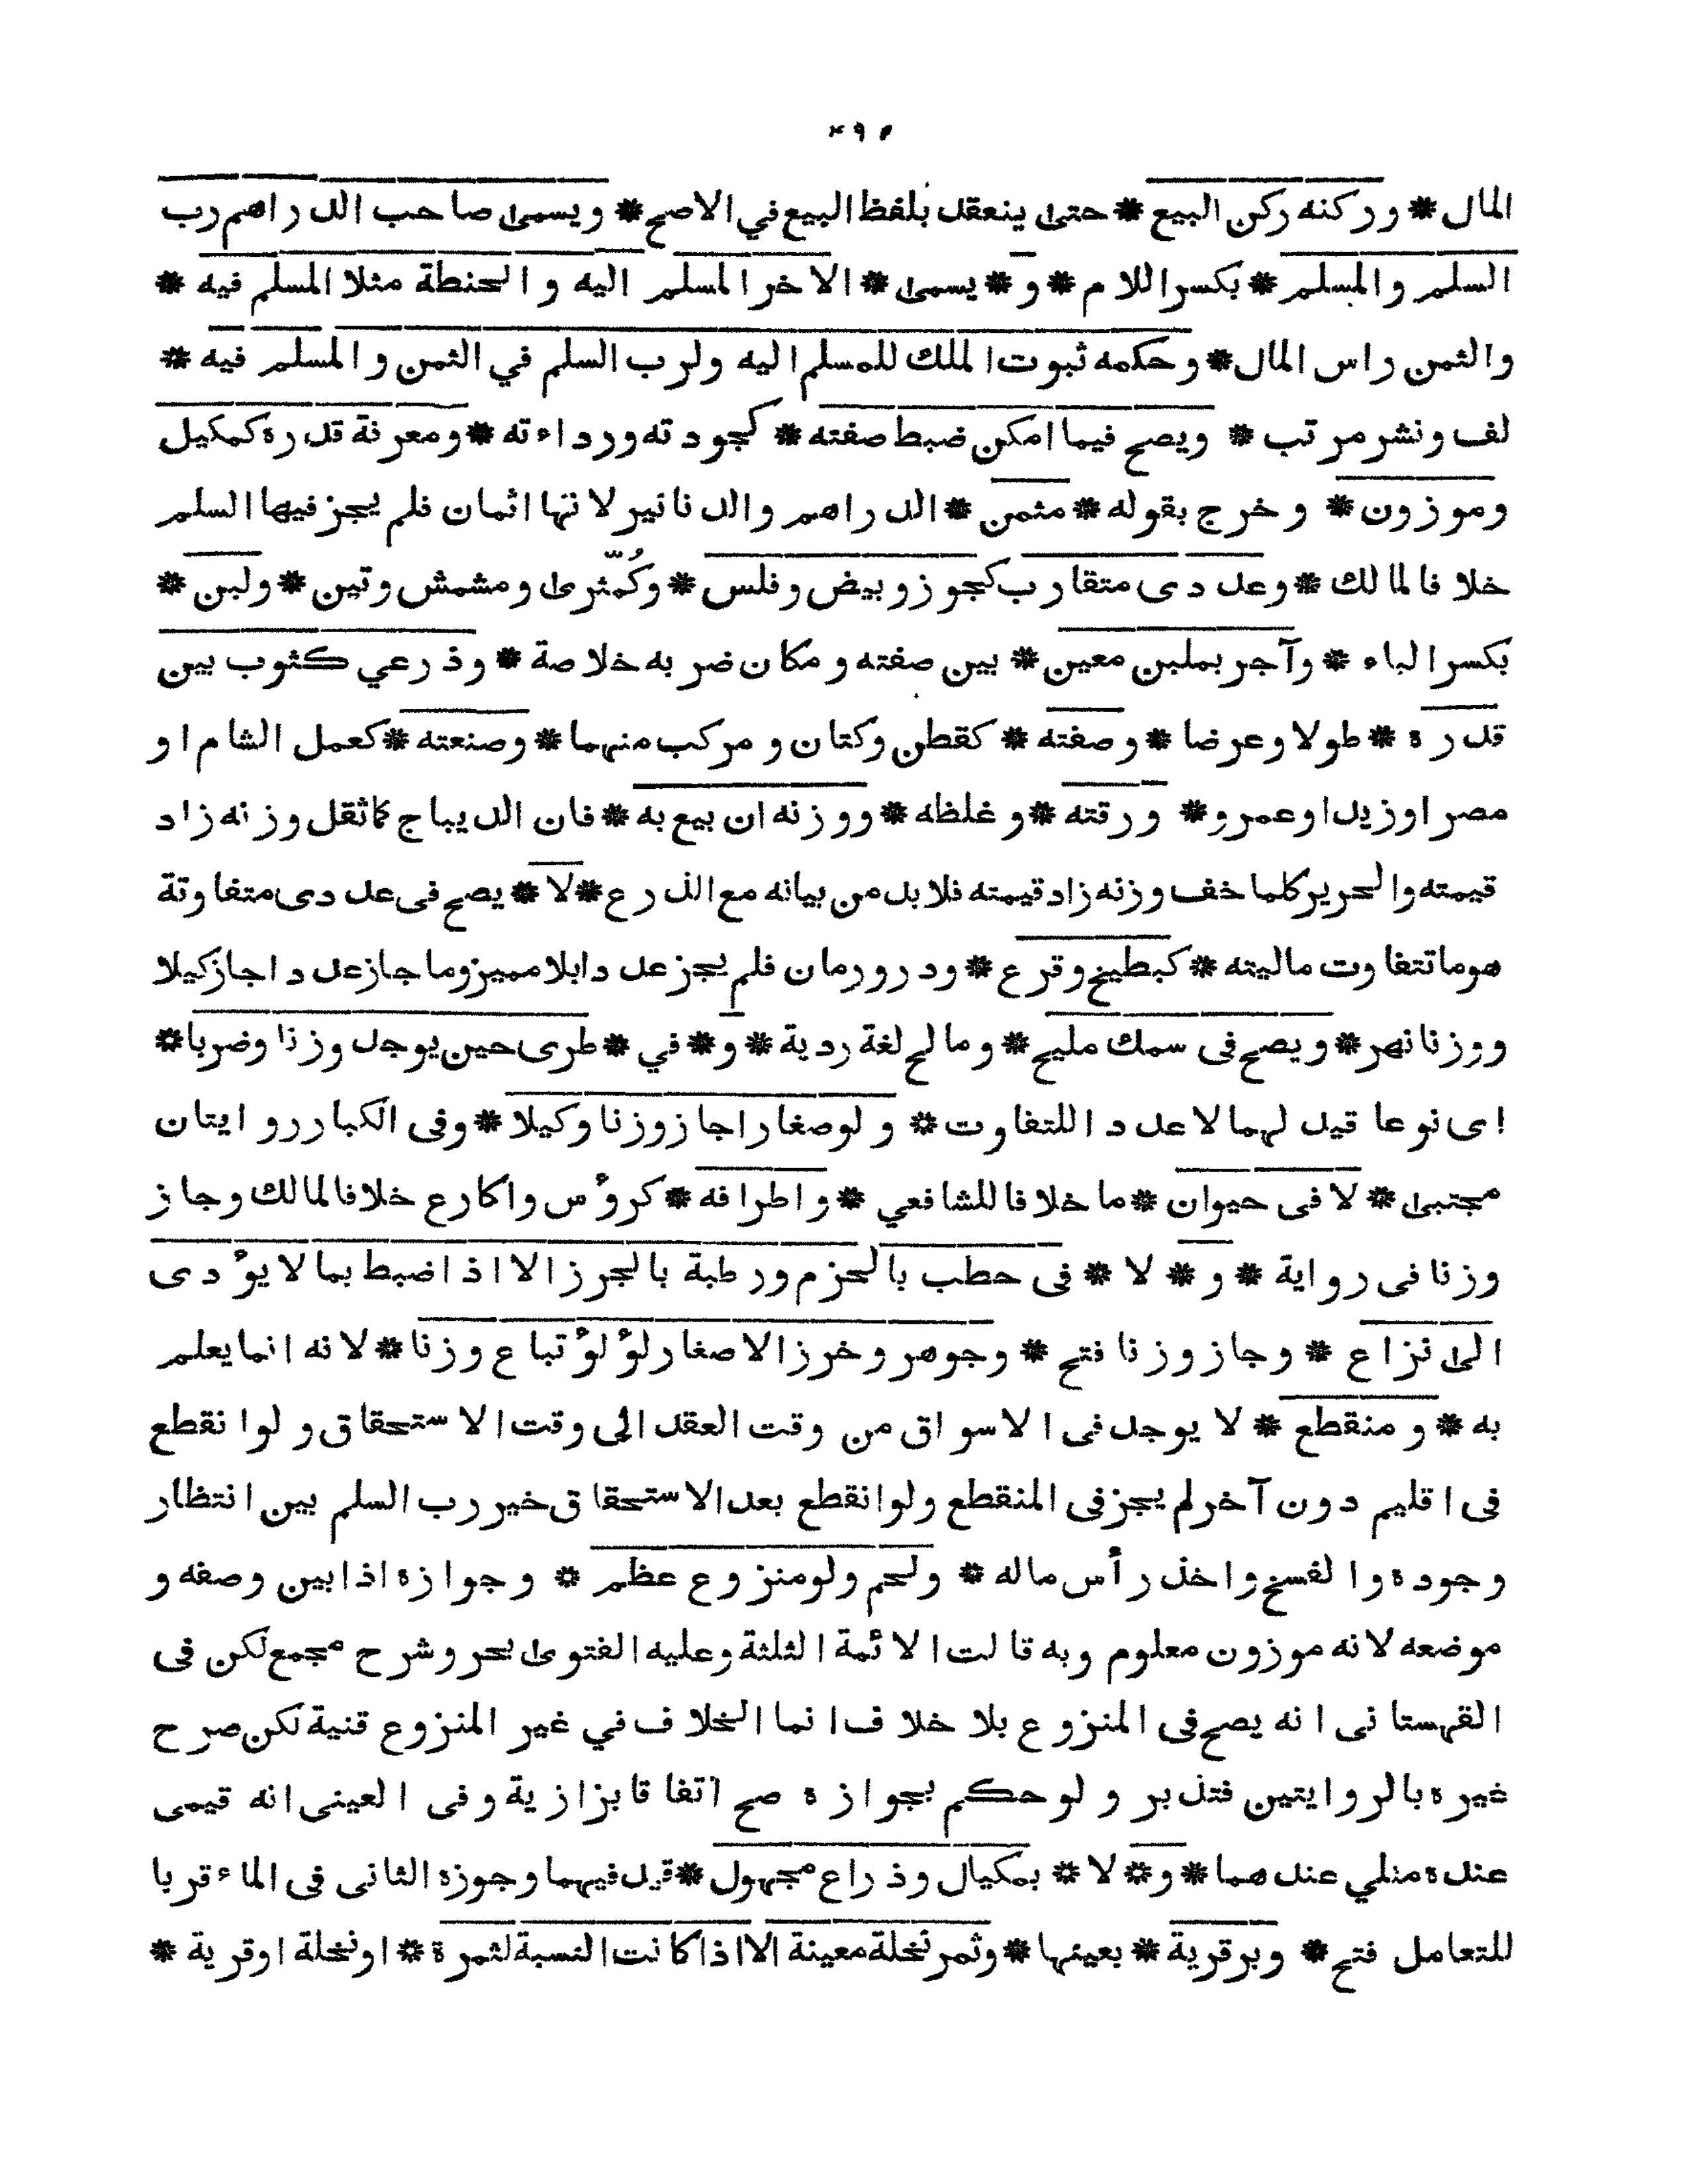 ۴۹۲
المال * وركنه ركن البيع * حتى ينعقد بلفظ البيع في الاصح * ويسمى صاحب الدراهم رب
السلم والمسلم * بكسر اللام * و * يسمى * الاخر المسلم اليه والحنطة مثلا المسلم فيه *
والثمن راس المال * وحكمه ثبوت الملك للمسلم اليه ولرب السلم في الثمن والمسلم فيه *
لف ونشر مرتب * ويصح فيما امكن ضبط صفته * كجودته ورداءته * ومعرفة قدره كمكيل
وموزون * وخرج بقوله * مثمن * الدراهم والدنانير لانها اثمان فلم يجز فيها السلم
خلافا لمالك * وعددى متقارب كجوز وبيض وفلس * وكُمّثرى ومشمش وتين * ولبن *
بكسر الباء * وآجر بملبن معين * بين صفته ومكان ضربه خلاصة * وذرعي كثوب بين
قدره * طولا وعرضا * وصفته * كقطن وكتان ومركب منهما * وصنعته * كعمل الشام او
مصر او زيد او عمرو * ورقته * وغلظه * ووزنه ان بيع به * فان الديباج كلما ثقل وزنه زاد
قيمته والحرير كلما خف وزنه زاد قيمته فلا بد من بيانه مع الذرع * لا * يصح فى عددى متفاوتة
هو ما تتفاوت ماليته * كبطيخ وقرع * ودر ورمان فلم يجز عددا بلا مميز وما جاز عددا جاز كيلا
ووزنا نهر * ويصح فى سمك مليح * ومالح لغة ردية * و * في * طرى حين يوجد وزنا وضربا *
اى نوعا قيد لهما لا عددا للتفاوت * ولو صغارا جاز وزنا وكيلا * وفى الكبار روايتان
مجتبى * لا فى حيوان * ما خلافا للشافعي * واطرافه * كرؤس واكارع خلافا لمالك وجاز
وزنا فى رواية * و * لا * فى حطب بالحزم ورطبة بالجرز الا اذا ضبط بما لا يؤدى
الى نزاع * وجاز وزنا فتح * وجوهر وخرز الا صغار لؤلؤ تباع وزنا * لانه انما يعلم
به * ومنقطع * لا يوجد فى الاسواق من وقت العقد الى وقت الاستحقاق ولو انقطع
فى اقليم دون آخر لم يجز فى المنقطع ولو انقطع بعد الاستحقاق خير رب السلم بين انتظار
وجوده والفسخ واخذ رأس ماله * ولحم ولو منزوع عظم * وجوازه اذا بين وصفه و
موضعه لانه موزون معلوم وبه قالت الائمة الثلثة وعليه الفتوى بحر وشرح مجمع لكن فى
القهستانى انه يصح فى المنزوع بلا خلاف انما الخلاف في غير المنزوع قنية لكن صرح
غيره بالروايتين فتدبر ولو حكم بجوازه صح اتفاقا بزازية وفى العينى انه قيمى
عنده مثلي عندهما * و * لا * بمكيال وذراع مجهول * قيد فيهما وجوزه الثانى فى الماء قربا
للتعامل فتح * وبر قرية * بعينها * وثمر نخلة معينة الا اذا كانت النسبة لثمرة * او نخلة او قرية *